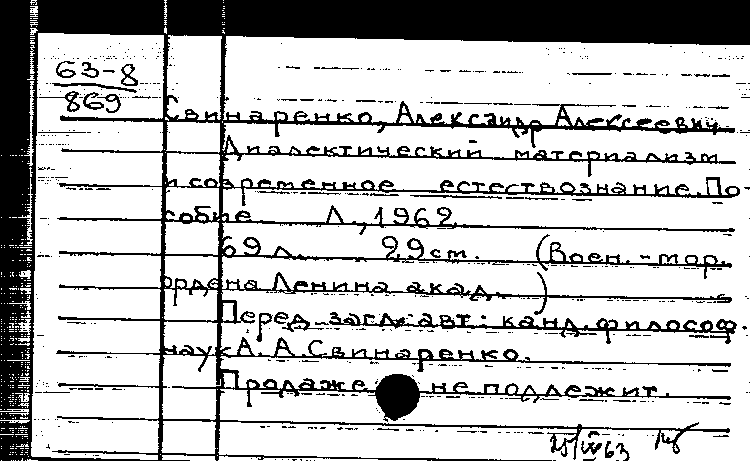 63-8
869
Свинаренко, Александр Алексеевич
Диалектический материализм
и современное естествознание. По-
собие Л., 1962
69 л. 29 см. (Воен.-мор.
ордена Ленина акад.)
Перед загл. авт.: канд. философ.
наук А. А. Свинаренко.
Продаже не подлежит.
63